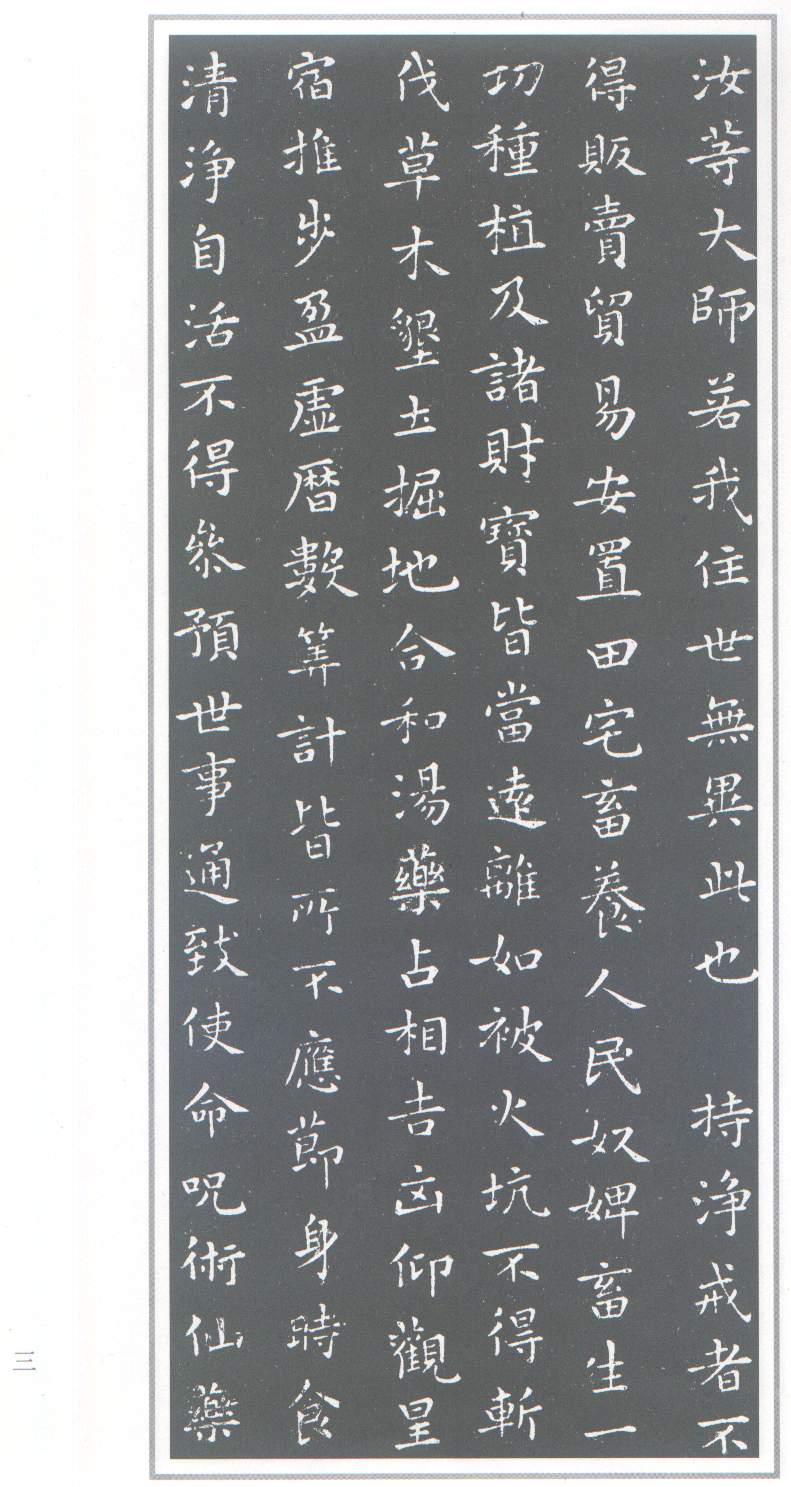 汝等大師若我住世無異此也　持浄戒者不
得販賣貿易安置田宅畜養人民奴婢畜生一
切種植及諸財寶皆當遠離如被火坑不得斬
伐草木墾土掘地合和湯藥占相吉凶仰觀星
宿推步盈虛曆數筭計皆所不應節身時食
清浄自活不得叅預世事通致使命呪術仙藥
三